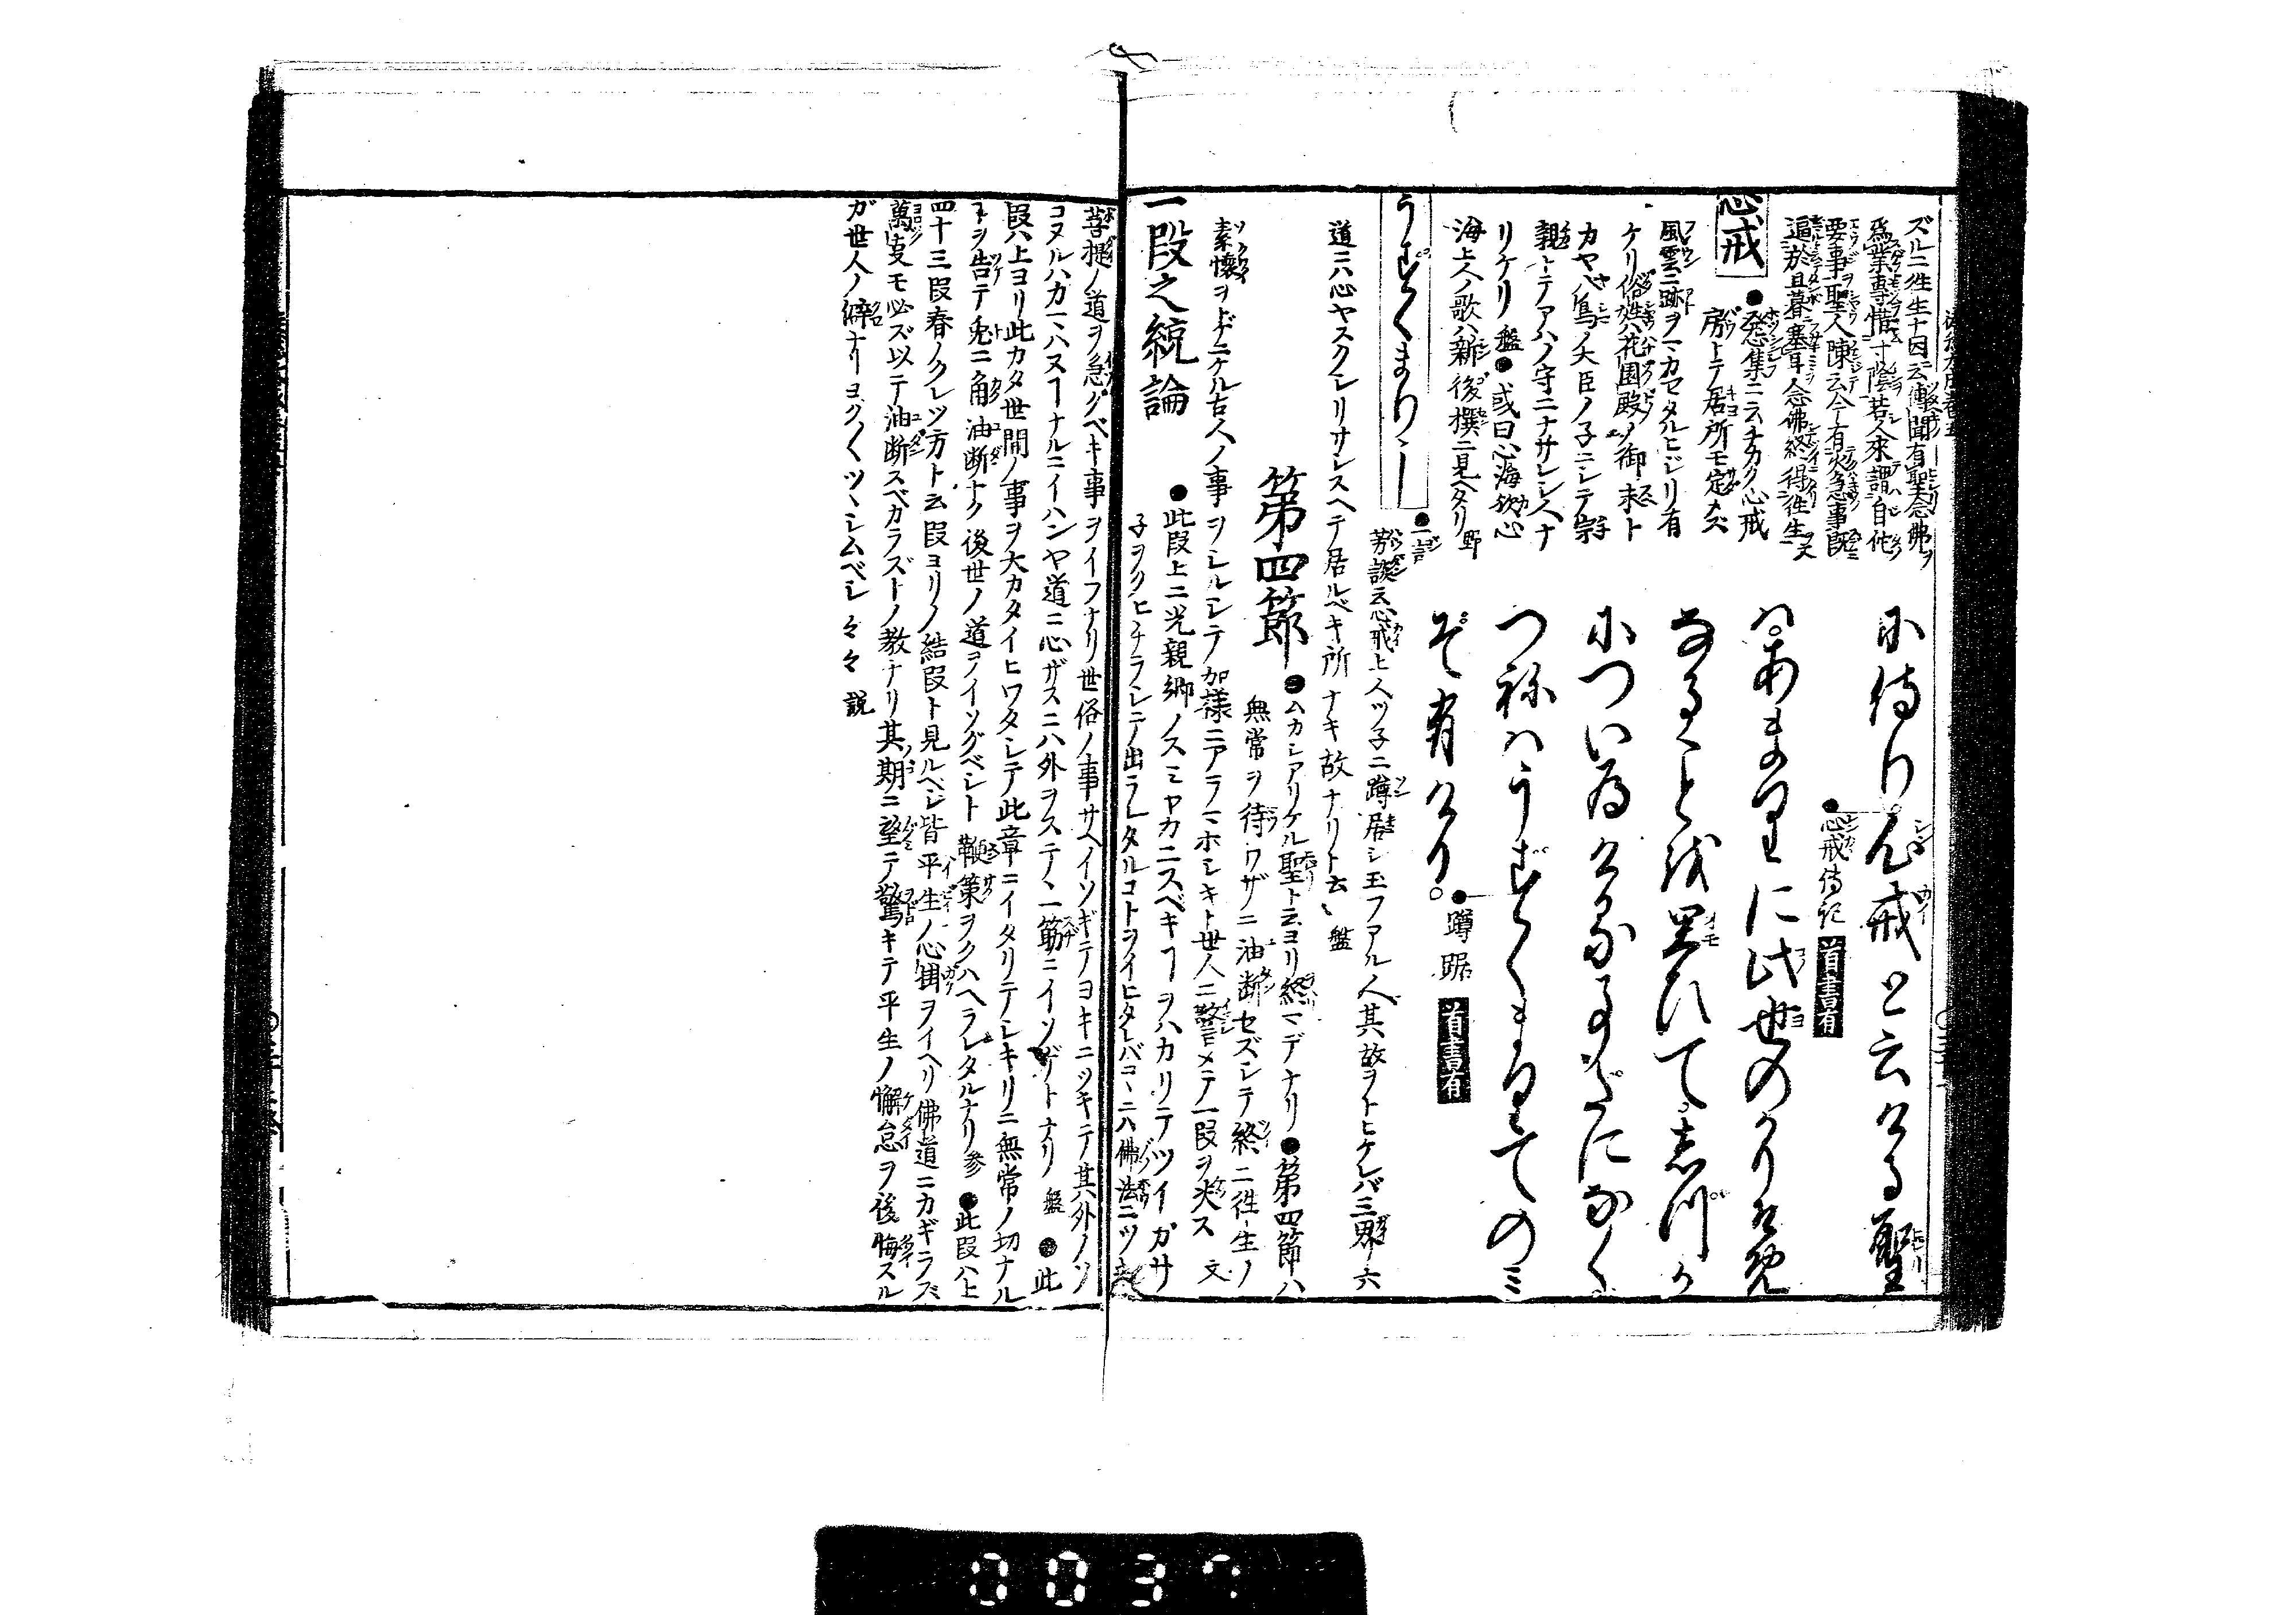 ズルニ往生十因云傳聞有聖念佛ヲ
爲業専惜寸陰若人來謂自他
要事聖人陳云今有火急事既
逼於旦暮塞耳念佛終得往生文
心戒
●発心集ニ云チカク心戒
房トテ居所モ定メズ
風雲ニ跡ヲマカセタルヒジリ有
ケリ俗姓ハ花園殿ノ御末ト
カヤ八島ノ大臣ノ子ニシテ宗
親トテアハノ守ニナサレシ人ナ
リケリ 盤●或曰心海歟心
海上人ノ歌ハ新後撰ニ見ヘタリ 野
うずくまり
●一言
芳談云心戒上人ツ子ニ蹲居シ玉フアル人其故ヲトヒケレバ三界六
道ニハ心ヤスクシリサシスヘテ居ルベキ所ナキ故ナリト云々 盤
に侍り心戒と云ける聖
●心戒傳記 首書有
はあまりに此世のかりそめ
なることを思ひてしづか
についゐけることだになく
つねはうずくまりてのミ
ぞ有ける。
●蹲踞 首書有
第四節
●ムカシアリケル聖ト云ヨリ終マデナリ●第四節ハ
無常ヲ待ワザニ油断セズシテ終ニ往生ノ
素懐ヲトゲニケル古人ノ事ヲシルシテ加様ニアラマホシキト世人ニ警シメテ一段ヲ決ス 文
一段之統論
●此段上ニ光親卿ノスミヤカニスベキヿヲハカリテツイガサ
子ヲクヒチラシテ出ラレタルコトヲイヒタレバコヽニハ佛法ニツキ
菩提ノ道ヲ急グベキ事ヲイフナリ世俗ノ事サヘイソギテヨキニツキテ其外ノソ
コヌルハカマハヌヿナルニイハンヤ道ニ心ザスニハ外ヲステヽ一筋ニイソゲトナリ 盤 ●此
段ハ上ヨリ此カタ世間ノ事ヲ大カタイヒワタシテ此章ニイタリテシキリニ無常ノ切ナル
ヿヲ告テ兎ニ角油断ナク後世ノ道ヲイソグベシト鞭策ヲクハヘラレタルナリ 参 ●此段ハ上
四十三段春ノクレツ方ト云段ヨリノ結段ト見ルベシ皆平生ノ心掛ヲイヘリ佛道ニカギラズ
萬事モ必ズ以テ油断スベカラズトノ教ナリ其期ニ望テ驚キテ平生ノ懈怠ヲ後悔スル
ガ世人ノ癖ナリヨク〱ツヽシムベシ々々 説
0037